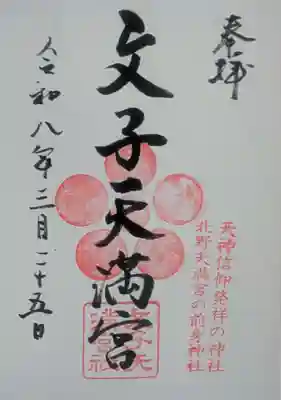 奉拝
天神信仰発祥の神社
北野天満宮の前身神社
文子天満宮
令和八年三月二十五日
文子天
満宮社